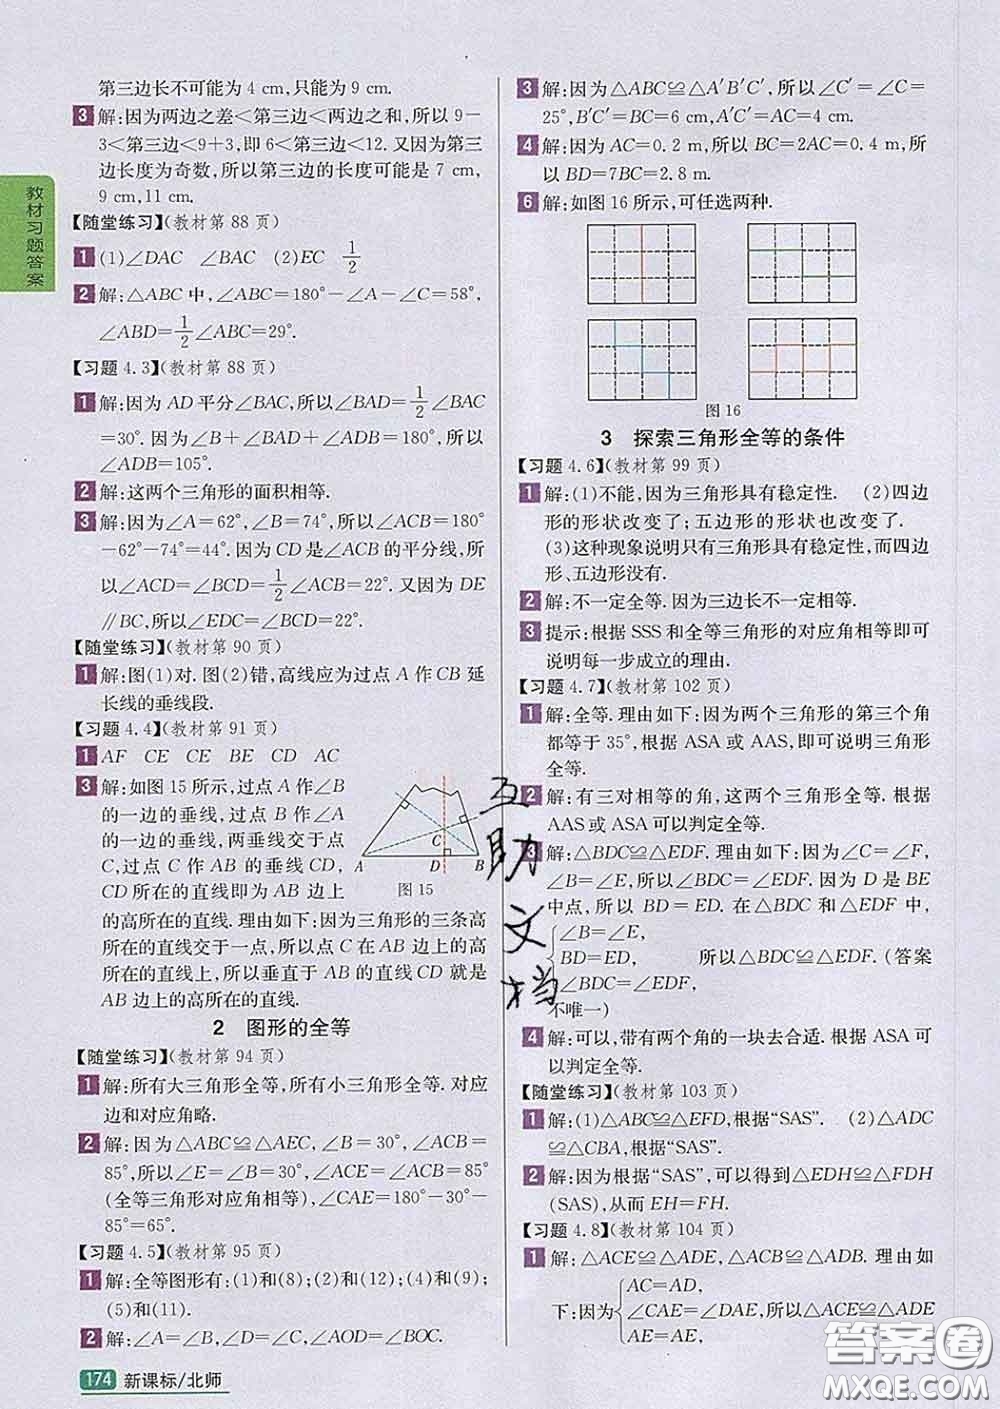 教材习题答案
第三边长不可能为 4 cm,只能为 9 cm.
3 解:因为两边之差<第三边<两边之和,所以 9-
3<第三边<9+3,即 6<第三边<12. 又因为第三
边长度为奇数,所以第三边的长度可能是 7 cm,
9 cm,11 cm.
【随堂练习】(教材第 88 页)
1 (1)∠DAC ∠BAC (2)EC 1/2
2 解:△ABC 中,∠ABC=180°-∠A-∠C=58°,
∠ABD=1/2∠ABC=29°.
【习题 4.3】(教材第 88 页)
1 解:因为 AD 平分∠BAC,所以∠BAD=1/2∠BAC
=30°. 因为∠B+∠BAD+∠ADB=180°,所以
∠ADB=105°.
2 解:这两个三角形的面积相等.
3 解:因为∠A=62°,∠B=74°,所以∠ACB=180°
-62°-74°=44°. 因为 CD 是∠ACB 的平分线,所
以∠ACD=∠BCD=1/2∠ACB=22°. 又因为 DE
∥BC,所以∠EDC=∠BCD=22°.
【随堂练习】(教材第 90 页)
1 解:图(1)对. 图(2)错,高线应为过点 A 作 CB 延
长线的垂线段.
【习题 4.4】(教材第 91 页)
1 AF CE CE BE CD AC
3 解:如图 15 所示,过点 A 作∠B
的一边的垂线,过点 B 作∠A
的一边的垂线,两垂线交于点
C,过点 C 作 AB 的垂线 CD,
CD 所在的直线即为 AB 边上
的高所在的直线. 理由如下:因为三角形的三条高
所在的直线交于一点,所以点 C 在 AB 边上的高
所在的直线上,所以垂直于 AB 的直线 CD 就是
AB 边上的高所在的直线.
A D B C
图 15
2 图形的全等
【随堂练习】(教材第 94 页)
1 解:所有大三角形全等,所有小三角形全等. 对应
边和对应角略.
2 解:因为△ABC≌△AEC,∠B=30°,∠ACB=
85°,所以∠E=∠B=30°,∠ACE=∠ACB=85°
(全等三角形对应角相等),∠CAE=180°-30°-
85°=65°.
【习题 4.5】(教材第 95 页)
1 解:全等图形有:(1)和(8);(2)和(12);(4)和(9);
(5)和(11).
2 解:∠A=∠B,∠D=∠C,∠AOD=∠BOC.
174 新课标/北师
3 解:因为△ABC≌△A′B′C′,所以∠C′=∠C=
25°,B′C′=BC=6 cm,A′C′=AC=4 cm.
4 解:因为 AC=0.2 m,所以 BC=2AC=0.4 m,所
以 BD=7BC=2.8 m.
6 解:如图 16 所示,可任选两种.
图 16
3 探索三角形全等的条件
【习题 4.6】(教材第 99 页)
1 解:(1)不能,因为三角形具有稳定性. (2)四边
形的形状改变了;五边形的形状也改变了.
(3)这种现象说明只有三角形具有稳定性,而四边
形、五边形没有.
2 解:不一定全等. 因为三边长不一定相等.
3 提示:根据 SSS 和全等三角形的对应角相等即可
说明每一步成立的理由.
【习题 4.7】(教材第 102 页)
1 解:全等. 理由如下:因为两个三角形的第三个角
都等于 35°,根据 ASA 或 AAS,即可说明三角形
全等.
2 解:有三对相等的角,这两个三角形全等. 根据
AAS或 ASA 可以判定全等.
3 解:△BDC≌△EDF. 理由如下:因为∠C=∠F,
∠B=∠E,所以∠BDC=∠EDF. 因为 D 是 BE
中点,所以 BD=ED. 在△BDC 和△EDF 中,
∠B=∠E,
BD=ED, 所以△BDC≌△EDF. (答案
∠BDC=∠EDF,
不唯一)
4 解:可以,带有两个角的一块去合适. 根据 ASA 可
以判定全等.
【随堂练习】(教材第 103 页)
1 解:(1)△ABC≌△EFD,根据“SAS”. (2)△ADC
≌△CBA,根据“SAS”.
2 解:因为根据“SAS”,可以得到△EDH≌△FDH
(SAS),从而 EH=FH.
【习题 4.8】(教材第 104 页)
1 解:△ACE≌△ADE,△ACB≌△ADB. 理由如
AC=AD,
下:因为 ∠CAE=∠DAE,所以△ACE≌△ADE
AE=AE,
互助文档
答案圈
MXQE.COM